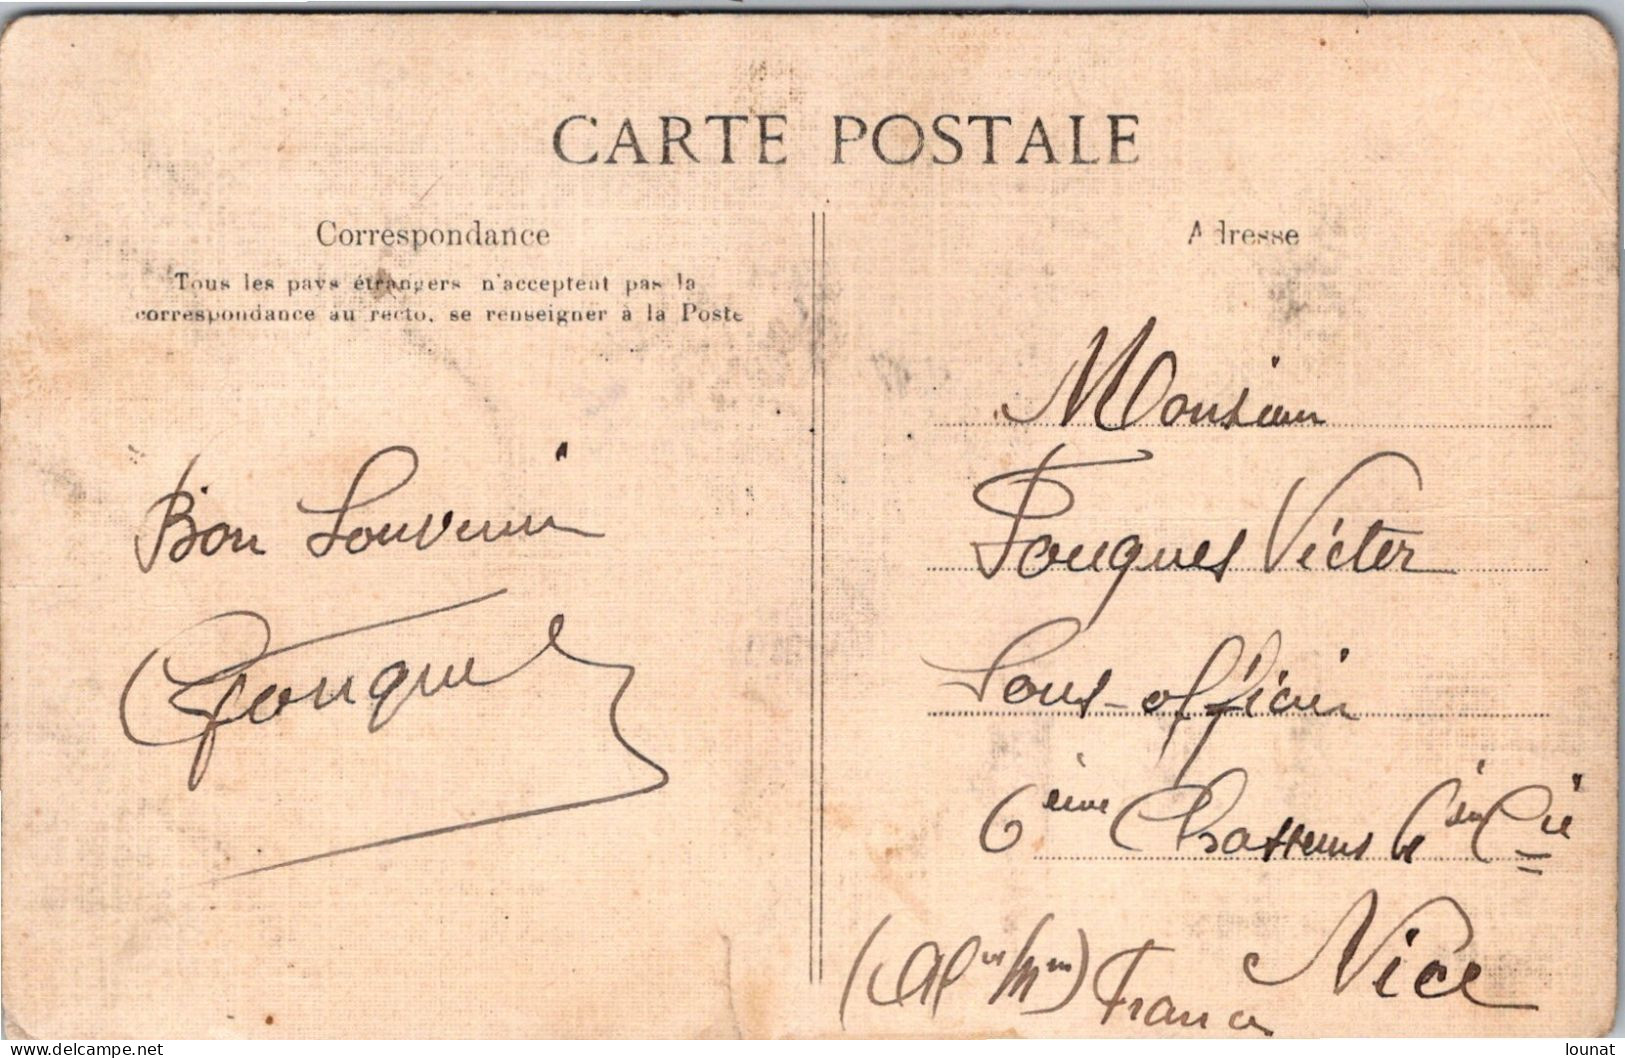 CARTE POSTALE
Correspondance
Tous les pays étrangers n'acceptent pas la
correspondance au recto, se renseigner à la Poste
Bon Souvenir
Fouques
Adresse
Monsieur
Fouques Victor
Sous-officier
6ième Chasseurs 6ième Cie
Nice
(Alpes Mmes) France
delcampe.net
lounat